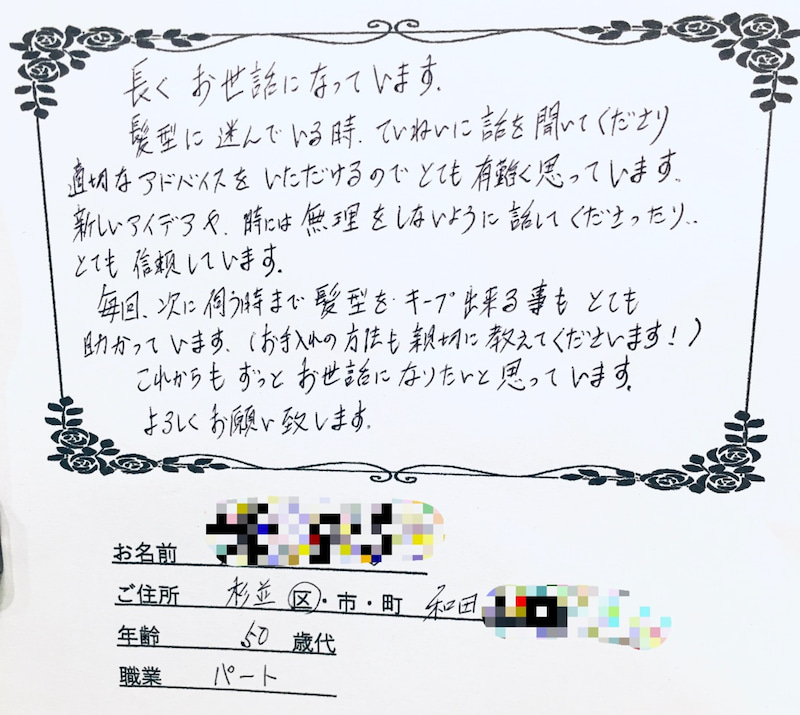 長く お世話になっています。
髪型に 迷んでいる時、ていねいに 話を 聞いてくださり
適切な アドバイスを いただけるので とても 有難く 思っています。
新しいアイデアや、時には 無理をしないように 話してくださったり、
とても 信頼しています。
毎回、次に 伺う時まで 髪型を キープ出来る事も とても
助かっています。(お手入れの方法も 親切に 教えてくださいます!)
これからも ずっと お世話になりたいと 思っています。
よろしく お願い致します。
お名前
ご住所 杉並 区・市・町 和田
年齢 50 歳代
職業 パート